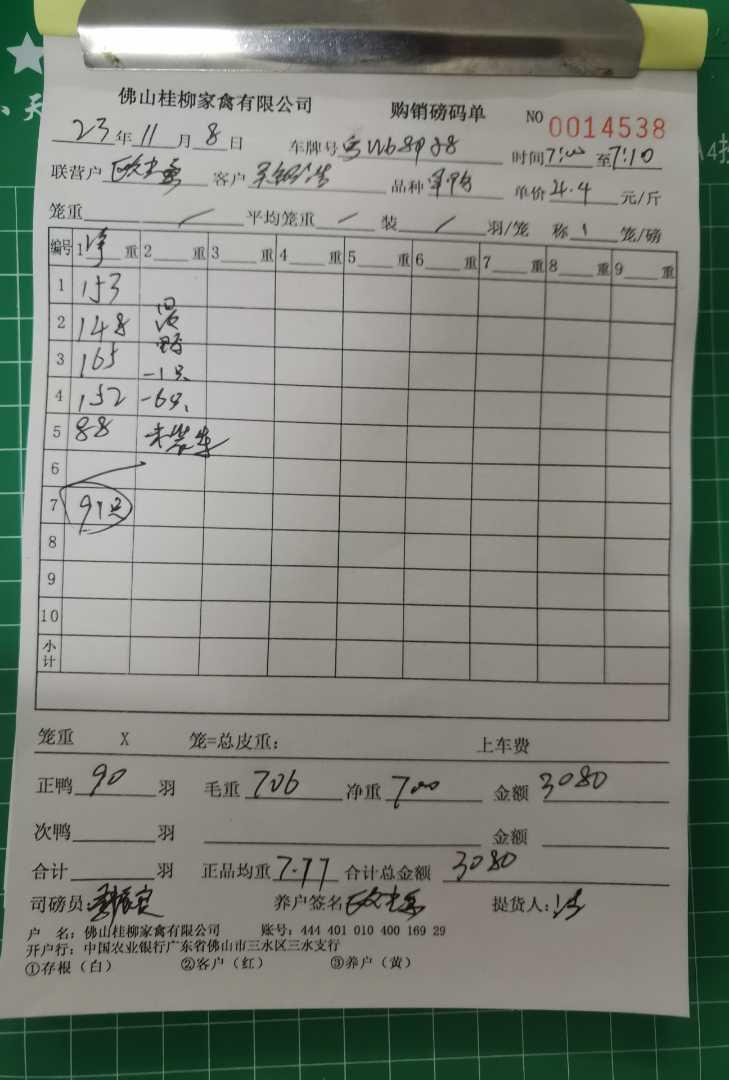 佛山桂柳家禽有限公司 购销磅码单 NO 0014538
23年11月8日 车牌号 时间7:00至7:10
联营户 客户 品种 单价4.4元/斤
笼重 / 平均笼重 / 装 / 羽/笼 称 1 笼/磅
编号 1净重 2 重 3 重 4 重 5 重 6 重 7 重 8 重 9 重
1 153
2 148
3 165 -1只
4 152 -6只
5 88 未装车
6
7 91只
8
9
10
小计
笼重 X 笼=总皮重: 上车费
正鸭 90 羽 毛重 706 净重 700 金额 3080
次鸭 羽 金额
合计 羽 正品均重 7.77 合计总金额 3080
司磅员: 养户签名 提货人:
户 名: 佛山桂柳家禽有限公司 账号: 444 401 010 400 169 29
开户行: 中国农业银行广东省佛山市三水区三水支行
①存根(白) ②客户(红) ③养户(黄)